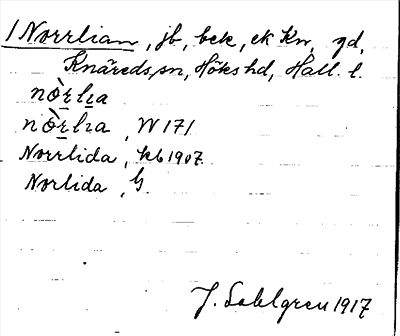 1 Norrlian, jb, bek, ek Kn, gd,
Knäreds sn, Höks hd, Hall. l.
nò̱rlıa
nò̱rlıa, W 171
Norrlida, kb 1907
Norlida, G.
J. Sahlgren 1917